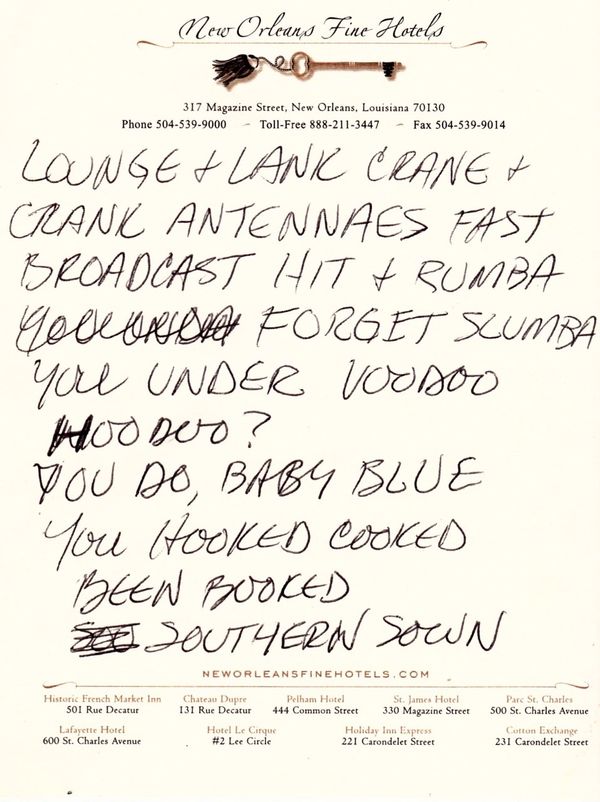 New Orleans Fine Hotels
317 Magazine Street, New Orleans, Louisiana 70130
Phone 504-539-9000 ~ Toll-Free 888-211-3447 ~ Fax 504-539-9014
LOUNGE + LANK CRANE +
CRANK ANTENNAES FAST
BROADCAST HIT + RUMBA
FORGET SLUMBA
YOU UNDER VOODOO
HOODOO?
YOU DO, BABY BLUE
YOU HOOKED COOKED
BEEN BOOKED
SOUTHERN SOWN
NEWORLEANSFINEHOTELS.COM
Historic French Market Inn Chateau Dupre Pelham Hotel St. James Hotel Parc St. Charles
501 Rue Decatur 131 Rue Decatur 444 Common Street 330 Magazine Street 500 St. Charles Avenue
Lafayette Hotel Hotel Le Cirque Holiday Inn Express Cotton Exchange
600 St. Charles Avenue #2 Lee Circle 221 Carondelet Street 231 Carondelet Street